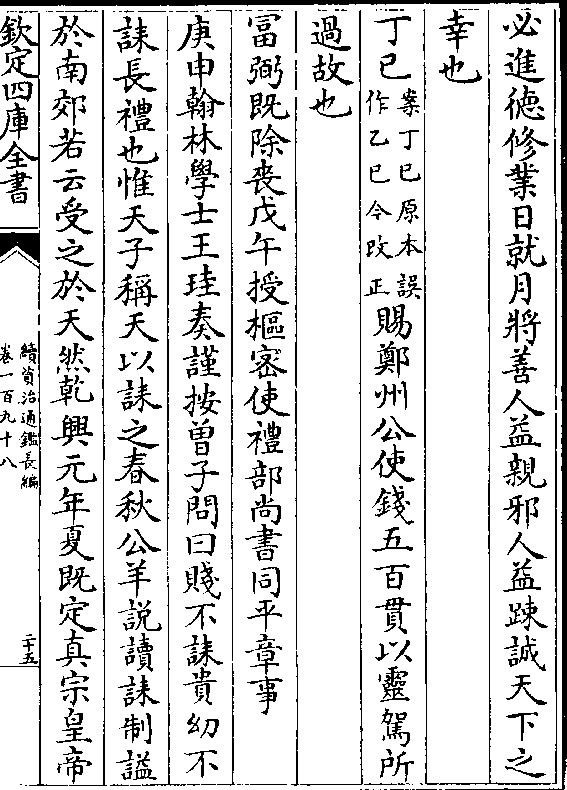 必進徳修業日就月將善人益親邪人益踈誠天下之
幸也
丁巳案丁巳原本誤
作乙巳今改正賜鄭州公使錢五百貫以靈駕所
過故也
富弼既除喪戊午授樞密使禮部尚書同平章事
庚申翰林學士王珪奏謹按曽子問曰賤不誄貴幼不
誄長禮也惟天子稱天以誄之春秋公羊説讀誄制諡
於南郊若云受之於天然乾興元年夏既定真宗皇帝
欽定四庫全書
續資治通鑑長編
卷一百九十八
二十五